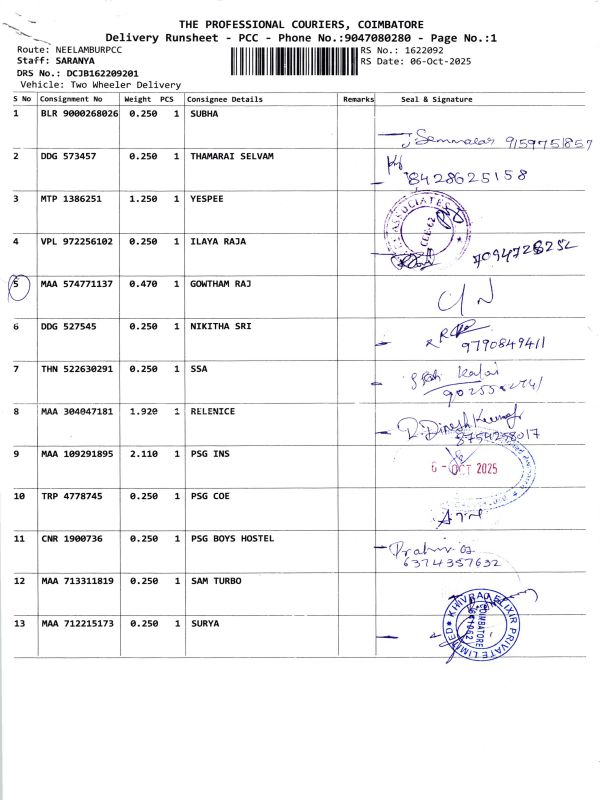 THE PROFESSIONAL COURIERS, COIMBATORE
Delivery Runsheet - PCC - Phone No.:9047080280 - Page No.:1
Route: NEELAMBURPCC RS No.: 1622092
Staff: SARANYA RS Date: 06-Oct-2025
DRS No.: DCJB162209201
Vehicle: Two Wheeler Delivery
S No Consignment No Weight PCS Consignee Details Remarks Seal & Signature
1 BLR 9000268026 0.250 1 SUBHA
9159751857
2 DDG 573457 0.250 1 THAMARAI SELVAM
8428625158
3 MTP 1386251 1.250 1 YESPEE
ASSOCIATES
4 VPL 972256102 0.250 1 ILAYA RAJA
5 MAA 574771137 0.470 1 GOWTHAM RAJ
6 DDG 527545 0.250 1 NIKITHA SRI
9790849411
7 THN 522630291 0.250 1 SSA
8 MAA 304047181 1.920 1 RELENICE
R. Dinesh Kumar
8754258017
9 MAA 109291895 2.110 1 PSG INS
6 - OCT 2025
10 TRP 4778745 0.250 1 PSG COE
11 CNR 1900736 0.250 1 PSG BOYS HOSTEL
6374357632
12 MAA 713311819 0.250 1 SAM TURBO
13 MAA 712215173 0.250 1 SURYA
KHIVRAJ ELIXIR PRIVATE LIMITED
COIMBATORE